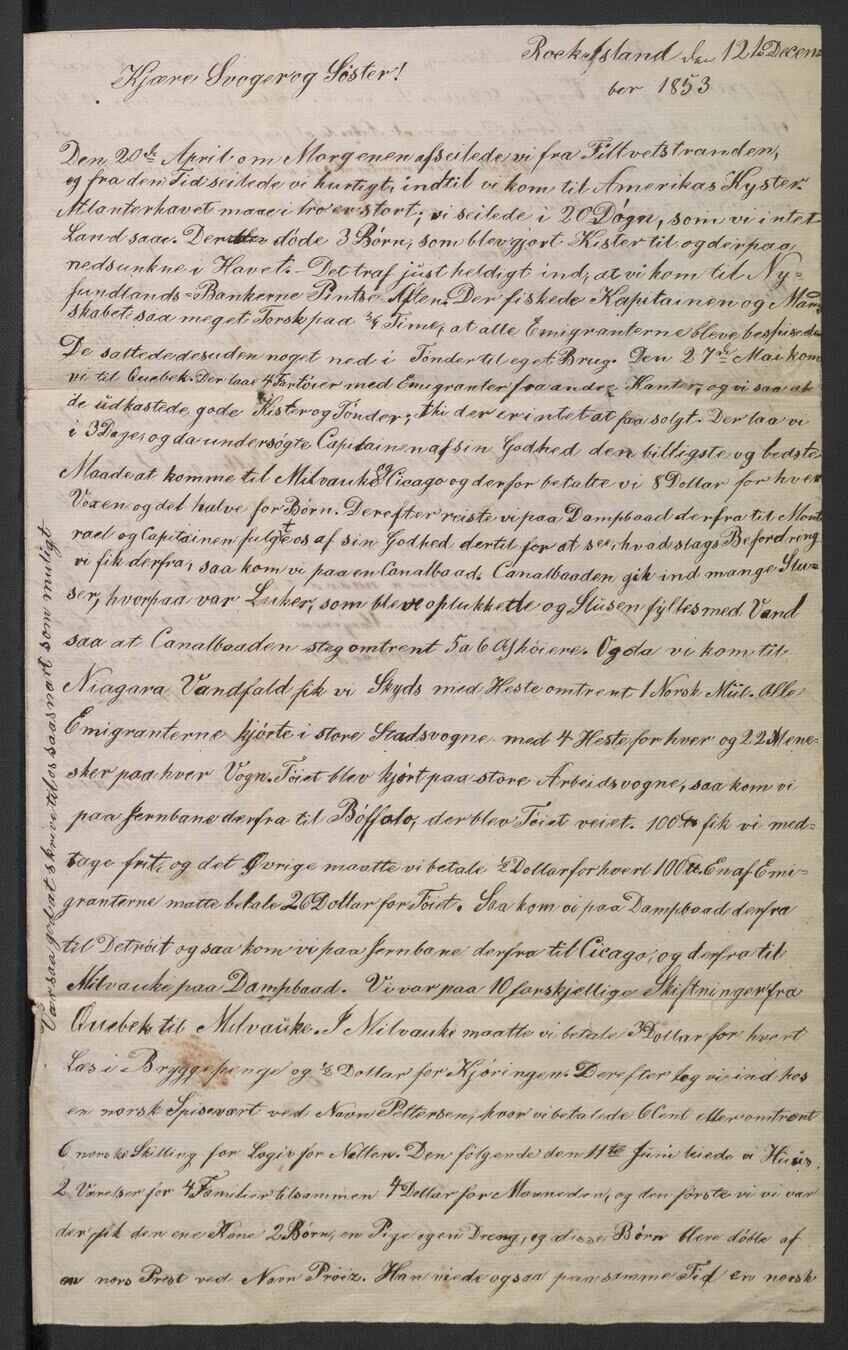 Rock Island den 12te Decem
ber 1853
Kjære Svoger og Söster!
Den 20de April om Morgenen afseilede vi fra Filtvetstranden,
og fra den Tid seilede vi hurtigt, indtil vi kom til Amerikas Kyster.
Atlanterhavet maae i tro er stort; vi seilede i 20 Dögn, som vi intet
Land saae. Der döde 3 Börn, som blev gjort Kister til og derpaa
nedsunkne i Havet. – Det traf just heldigt ind, at vi kom til Ny=
fundlands-Bankerne Pintse Aften. Der fiskede Kapitainen og Man
skabet saa meget Torsk paa ¾ Time, at alle Emigranterne bleve bespisede
De saltede desuden noget ned i Tönder til eget Brug. Den 27de Mai kom
vi til Quebek. Der laae 4 Fartöier med Emigranter fra andre Kanter, og vi saa at
de udkastede gode Kister og Tönder, thi der er intet at faa solgt. Der laa vi
i 3 Dage, og da undersögte Capitainen af sin Godhed den billigste og bedste
Maade at komme til Milvauke og Cicago og derfor betalte vi 8 Dollar for hver
Voxen og det halve for Börn. Derefter reiste vi paa Dampbaad derfra til Mont
real og Capitainen fulgte os af sin Godhed dertil for at see, hvad slags Befordring
vi fik derfra, saa kom vi paa en Canalbaad. Canalbaaden gik ind mange Slu=
ser, hvorpaa var Luker, som bleve oplukkede og Slusen fyltes med Vand
saa at Canalbaaden steg omtrent 5 a 6 Al höiere. Og da vi kom til
Niagara Vandfald fik vi Skyds med Heste omtrent 1 Norsk Miil. Alle
Emigranterne kjörte i store Stadsvogne med 4 Heste for hver og 22 Mene=
sker paa hver Vogn. Töiet blev kjört paa store Arbeidsvogne, saa kom vi
paa Jernbane derfra til Böffalo, der blev Töiet veiet. 100 ℔ fik vi med=
tage frit, og det Övrige maatte vi betale ½ Dollar for hvert 100 ℔. En af Emi=
granterne matte betale 26 Dollar for Töiet. Saa kom vi paa Dampbaad derfra
til Detroit og saa kom vi paa Jernbane derfra til Cicago, og derfra til
Milvauke paa Dampbaad. Vi var paa 10 forskjellige Skiftninger fra
Quebek til Milvauke. I Milvauke maatte vi betale 3 Dollar for hvert
Læs i Bryggepenge og ½ Dollar for Kjöringen. Derefter tog vi ind hos
en norsk Spisevært ved Navn Pettersen, hvor vi betalede 6 Cent eller omtrent
6 norske Skilling for Logis for Natten. Den fölgende den 11te Juni leiede vi Huus,
2 Værelser for 4 Familier tilsammen 4 Dollar for Maaneden, og den förste vi vi var
der fik den ene Kone 2 Börn, en Pige og en Dreng, og disse Börn bleve döbte af
en nors Prest ved Navn Pröiz. Han viede ogsaa paa samme Tid en norsk
Vær saa god at skrive til os saa snart som muligt